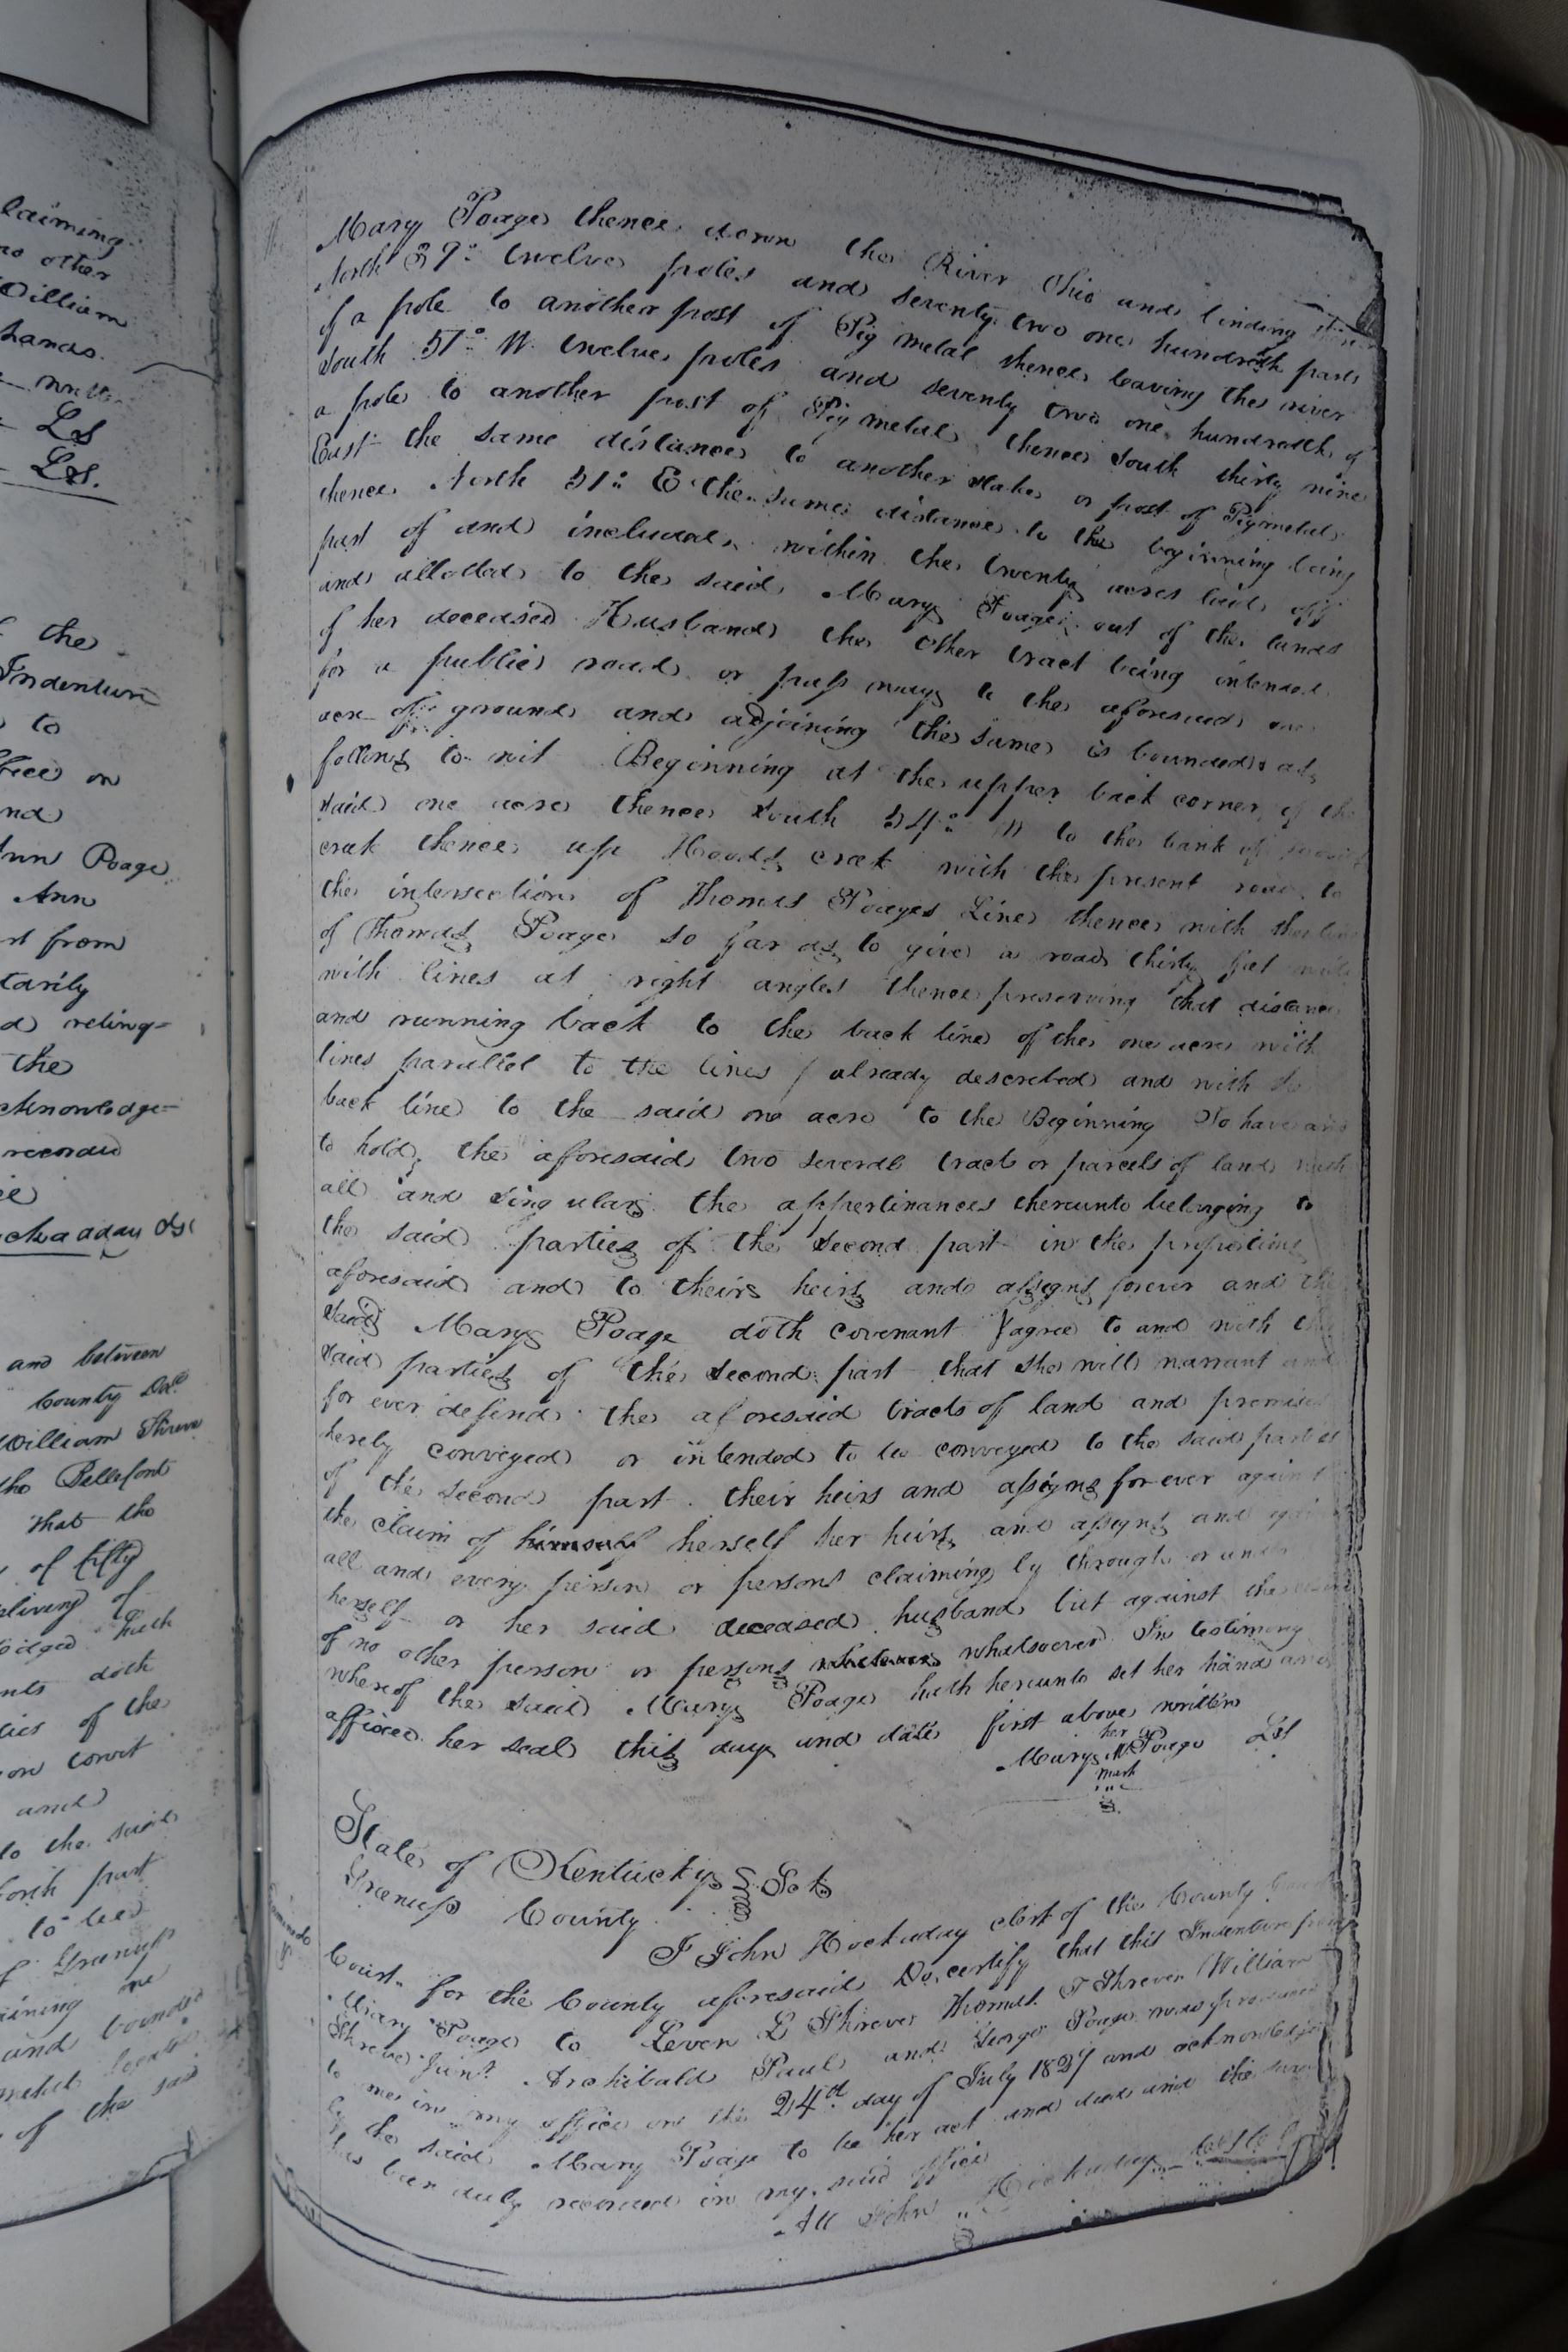 laiming
no other
William
hands.
LS
LS.
the
Indenture
to
office on
and
Ann Poage
Ann
rt from
tarily
d reling=
the
cknowledge=
recorded
chaaday
and between
County
William Shreve
the Bellefont
that the
of fifty
of
hath
nts doth
ties of the
on covet
and
to the said
forth part
to bee
of Greenup
ining
and bound
of the said
of
Mary Poage thence down the River Ohio and binding
North 39° twelve poles and seventy two one hundredth parts
of a pole to another post of Pig metal thence leaving the river
South 51° W. twelve poles and seventy two one hundredth of
a pole to another post of Pig metal thence South thirty nine
East the same distance to another stake or post of Pig metal
thence North 51° E the same distance to the beginning being
part of and included within the twenty acres laid off
and allotted to the said Mary Poage out of the lands
of her deceased Husband the other tract being intended
for a public road or pass way to the aforesaid one
acre of ground and adjoining the same is bounded as
follows to wit Beginning at the upper back corner of the
said one acre thence South 54° W to the bank of
creek thence up Hoods creek with the present road to
the intersection of Thomas Poages Line thence with the line
of Thomas Poage so far as to give a road thirty feet wide
with lines at right angles thence preserving that distance
and running back to the back line of the one acre with
lines parallel to the lines already described and with the
back line to the said one acre to the Beginning To have and
to hold the aforesaid two several tracts or parcels of land with
all and singular the appertinances thereunto belonging to
the said parties of the second part in the proportions
aforesaid and to theirs heirs and assigns forever and the
said Mary Poage doth covenant & agree to and with the
said parties of the second part that she will warrant and
for ever defend the aforesaid tracts of land and premises
hereby conveyed or intended to be conveyed to the said parties
of the second part their heirs and assigns for ever against
the claim of himself herself her heirs and assigns and against
all and every person or persons claiming by through or under
herself or her said deceased husband but against the claim
of no other person or persons whatsoever In testimony
whereof the said Mary Poage hath hereunto set her hand and
affixed her seal this day and date first above written
her
Mary M Poage LS
mark
State of Kentucky Sct
Greenup County
I John Hockaday clerk of the County
Court for the County aforesaid Do certify that this Indenture from
Mary Poage to Leven L Shreve Thomas T Shreve William
Shreve Junr Archibald Paul and George Poage was produced
to me in my office on the 24th day of July 1827 and acknowledged
by the said Mary Poage to be her act and deed and the same
has been duly recorded in my said office
Att John Hockaday